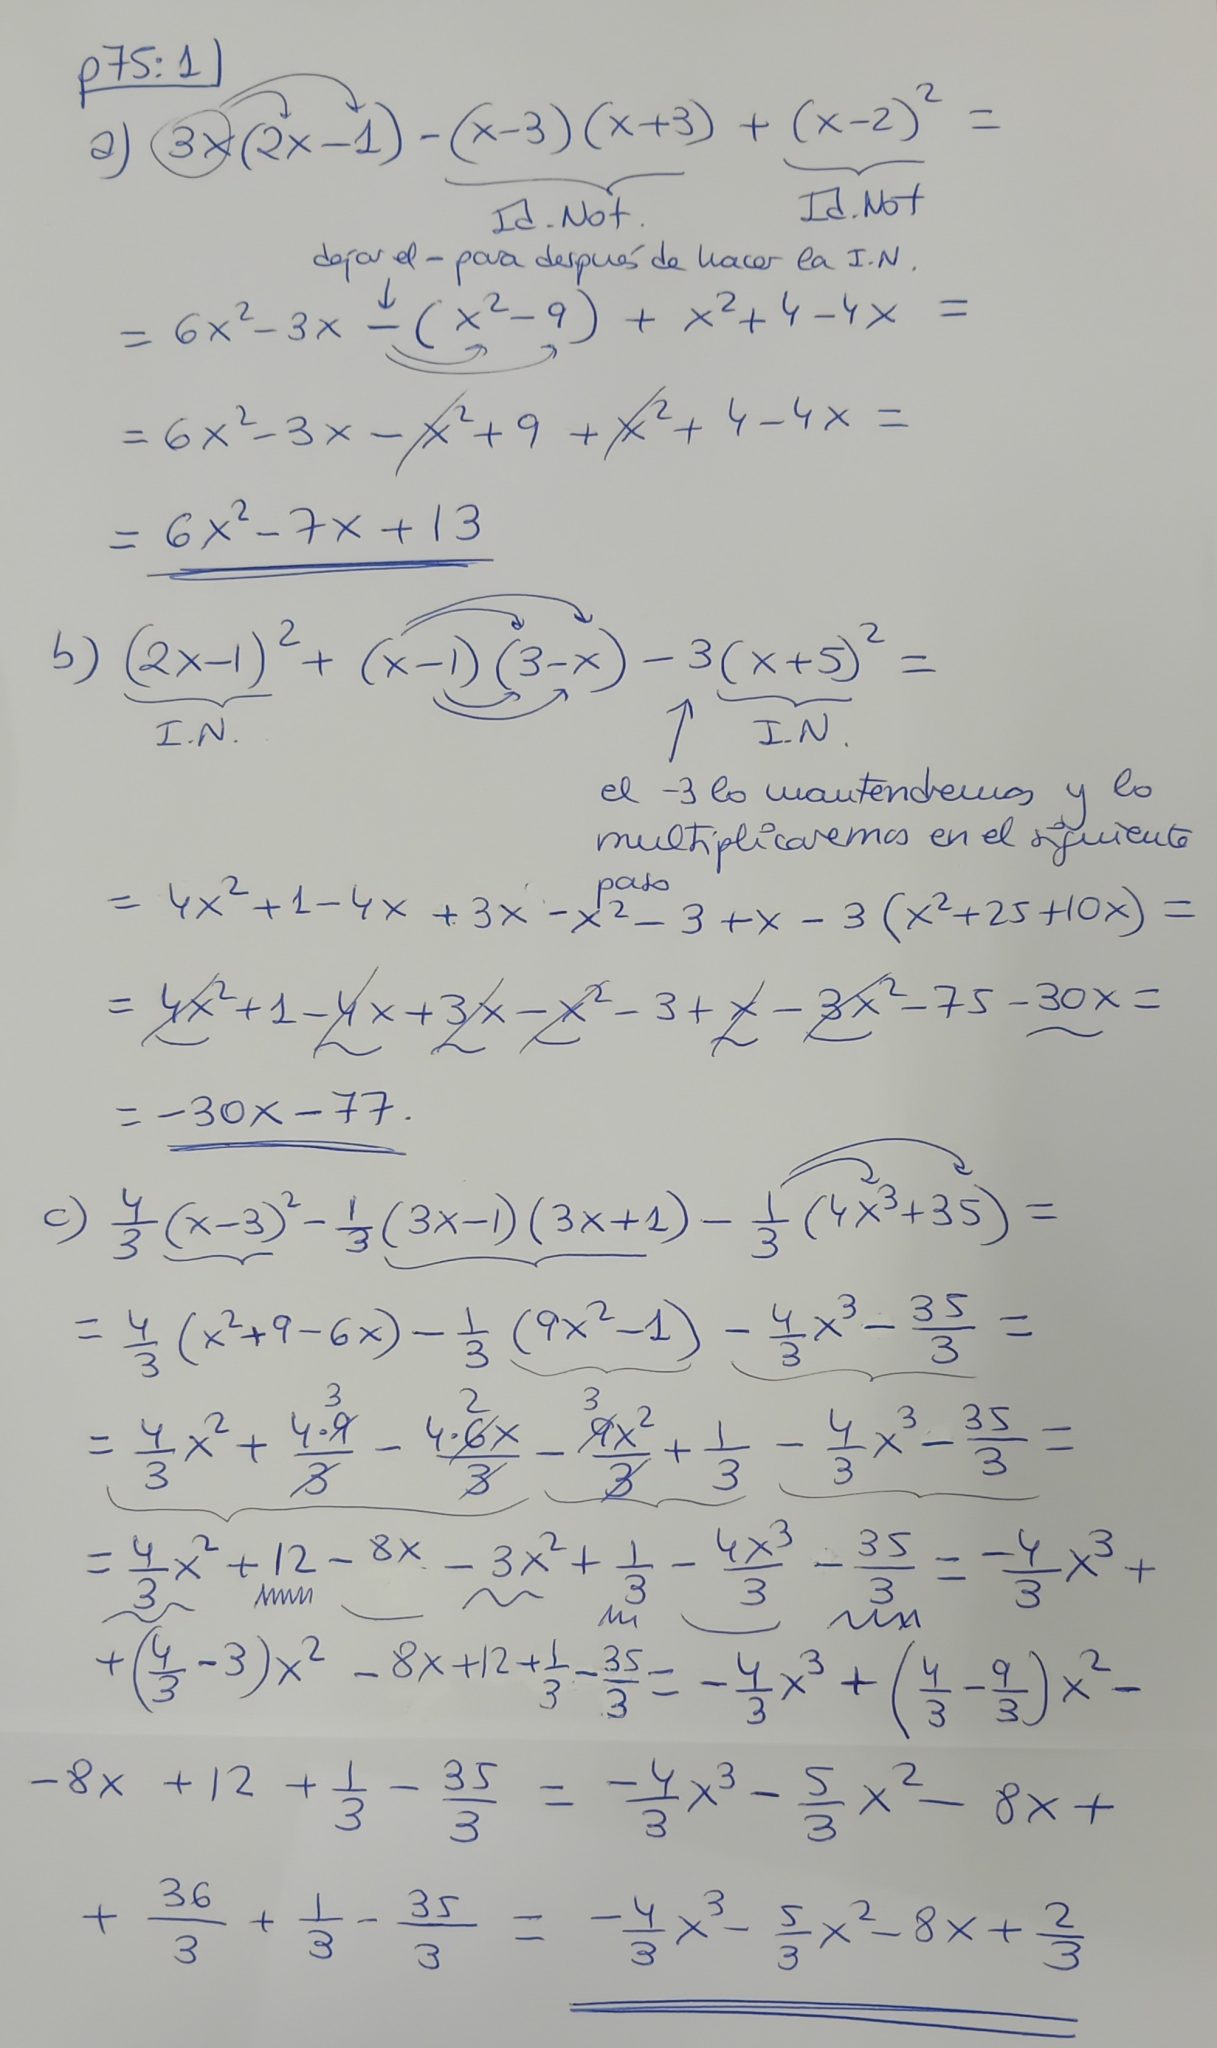 p75: 1)
a) 3x(2x-1) - (x-3)(x+3) + (x-2)² =
Id. Not. Id. Not
dejar el - para después de hacer la I.N.
= 6x² - 3x - (x² - 9) + x² + 4 - 4x =
= 6x² - 3x - x² + 9 + x² + 4 - 4x =
= 6x² - 7x + 13
b) (2x-1)² + (x-1)(3-x) - 3(x+5)² =
I.N. I.N.
el -3 lo mantendremos y lo
multiplicaremos en el siguiente
paso
= 4x² + 1 - 4x + 3x - x² - 3 + x - 3(x² + 25 + 10x) =
= 4x² + 1 - 4x + 3x - x² - 3 + x - 3x² - 75 - 30x =
= -30x - 77.
c) 4/3 (x-3)² - 1/3 (3x-1)(3x+1) - 1/3 (4x³ + 35) =
= 4/3 (x² + 9 - 6x) - 1/3 (9x² - 1) - 4/3 x³ - 35/3 =
3 2 3
= 4/3 x² + 4·9/3 - 4·6x/3 - 9x²/3 + 1/3 - 4/3 x³ - 35/3 =
= 4/3 x² + 12 - 8x - 3x² + 1/3 - 4x³/3 - 35/3 = -4/3 x³ +
+ (4/3 - 3)x² - 8x + 12 + 1/3 - 35/3 = -4/3 x³ + (4/3 - 9/3) x² -
- 8x + 12 + 1/3 - 35/3 = -4/3 x³ - 5/3 x² - 8x +
+ 36/3 + 1/3 - 35/3 = -4/3 x³ - 5/3 x² - 8x + 2/3